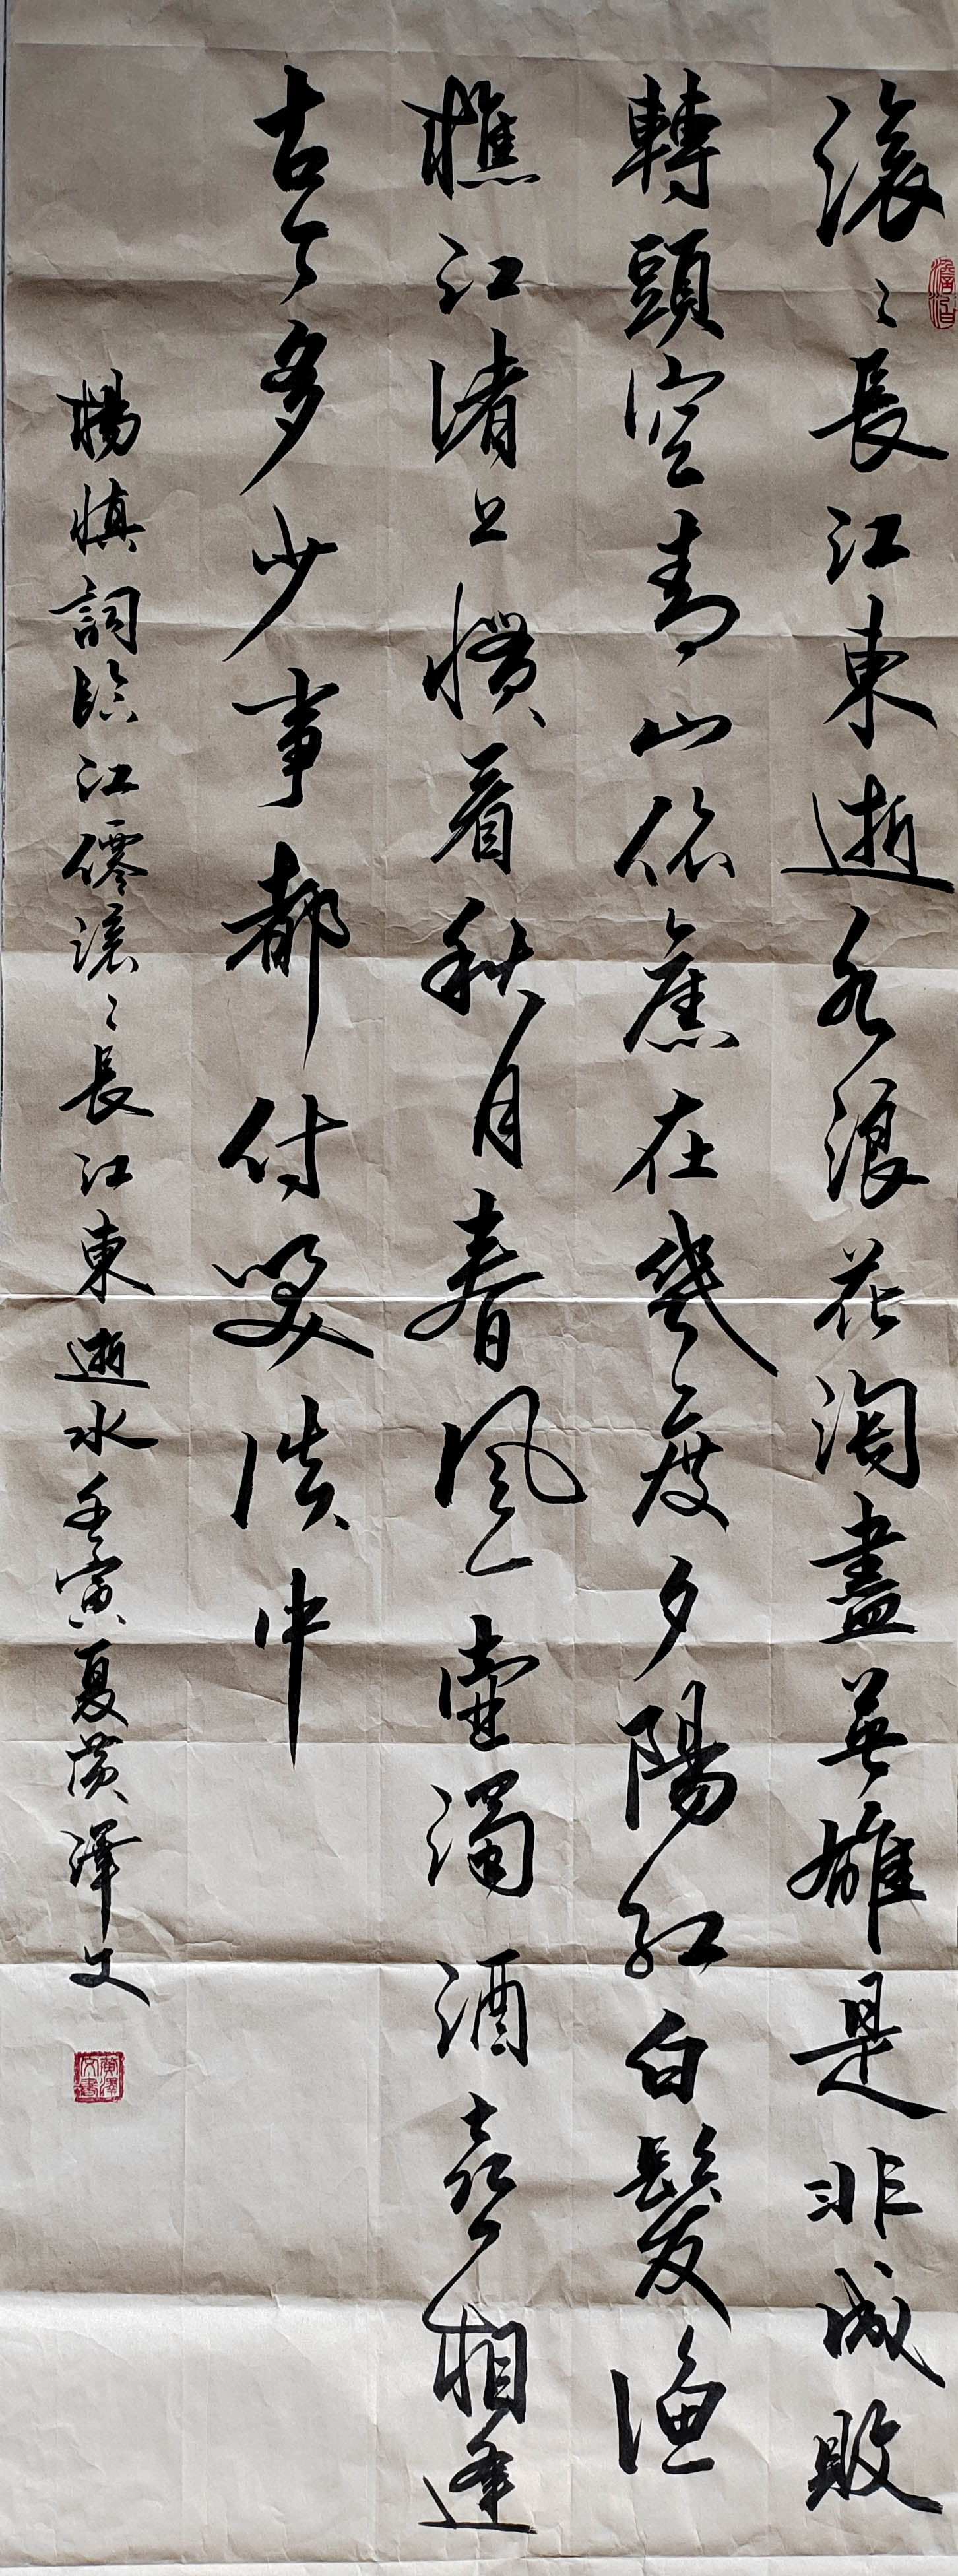 滾〻長江東逝水浪花淘盡英雄是非成敗
轉頭空青山依舊在幾度夕陽紅白髮漁
樵江渚上慣看秋月春風一壺濁酒喜相逢
古今多少事都付笑談中
楊慎詞臨江僊滾〻長江東逝水壬寅夏黃澤文
黃澤文書